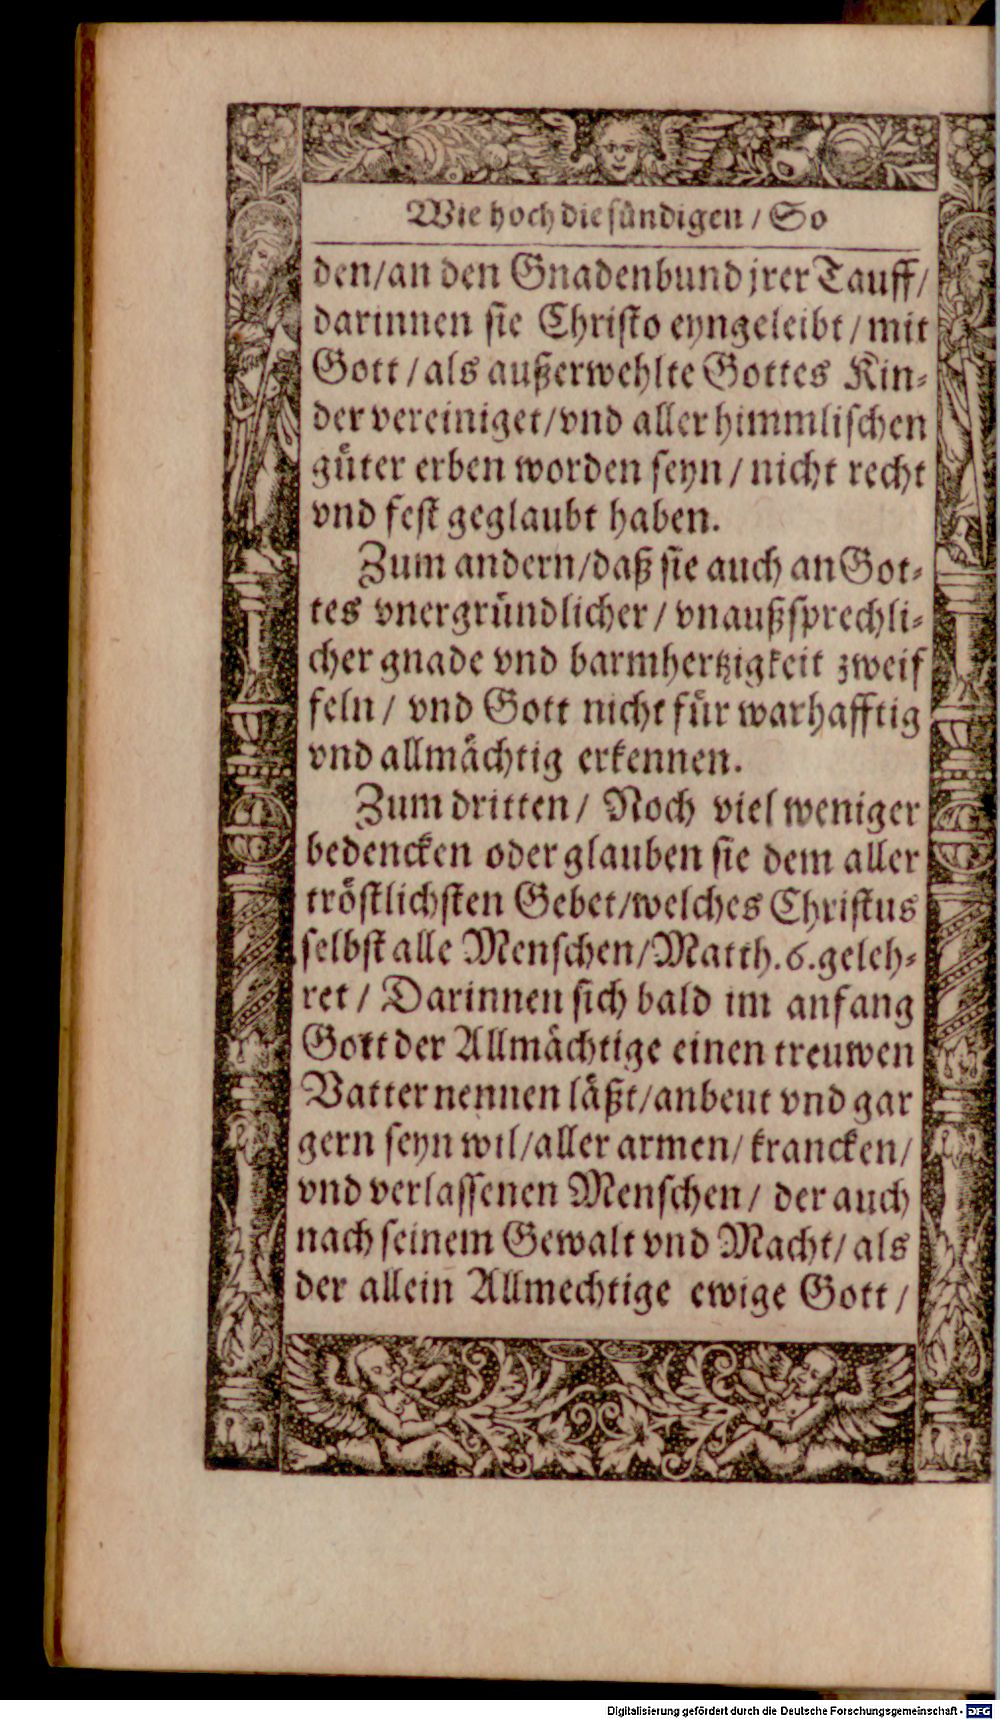 Wie hoch die sündigen / So
den/an den Gnadenbund jrer Tauff/
darinnen sie Christo eyngeleibt / mit
Gott / als außerwehlte Gottes Kin-
der vereiniget/vnd aller himmlischen
güter erben worden seyn / nicht recht
vnd fest geglaubt haben.
Zum andern/daß sie auch an Got-
tes vnergründlicher / vnaußsprechli-
cher gnade vnd barmhertzigkeit zweif
feln / vnd Gott nicht für warhafftig
vnd allmächtig erkennen.
Zum dritten / Noch viel weniger
bedencken oder glauben sie dem aller
tröstlichsten Gebet/welches Christus
selbst alle Menschen/Matth.6.geleh-
ret / Darinnen sich bald im anfang
Gott der Allmächtige einen treuwen
Vatter nennen läßt/anbeut vnd gar
gern seyn wil/aller armen/ krancken/
vnd verlassenen Menschen / der auch
nach seinem Gewalt vnd Macht/ als
der allein Allmechtige ewige Gott /
Digitalisierung gefördert durch die Deutsche Forschungsgemeinschaft - DFG